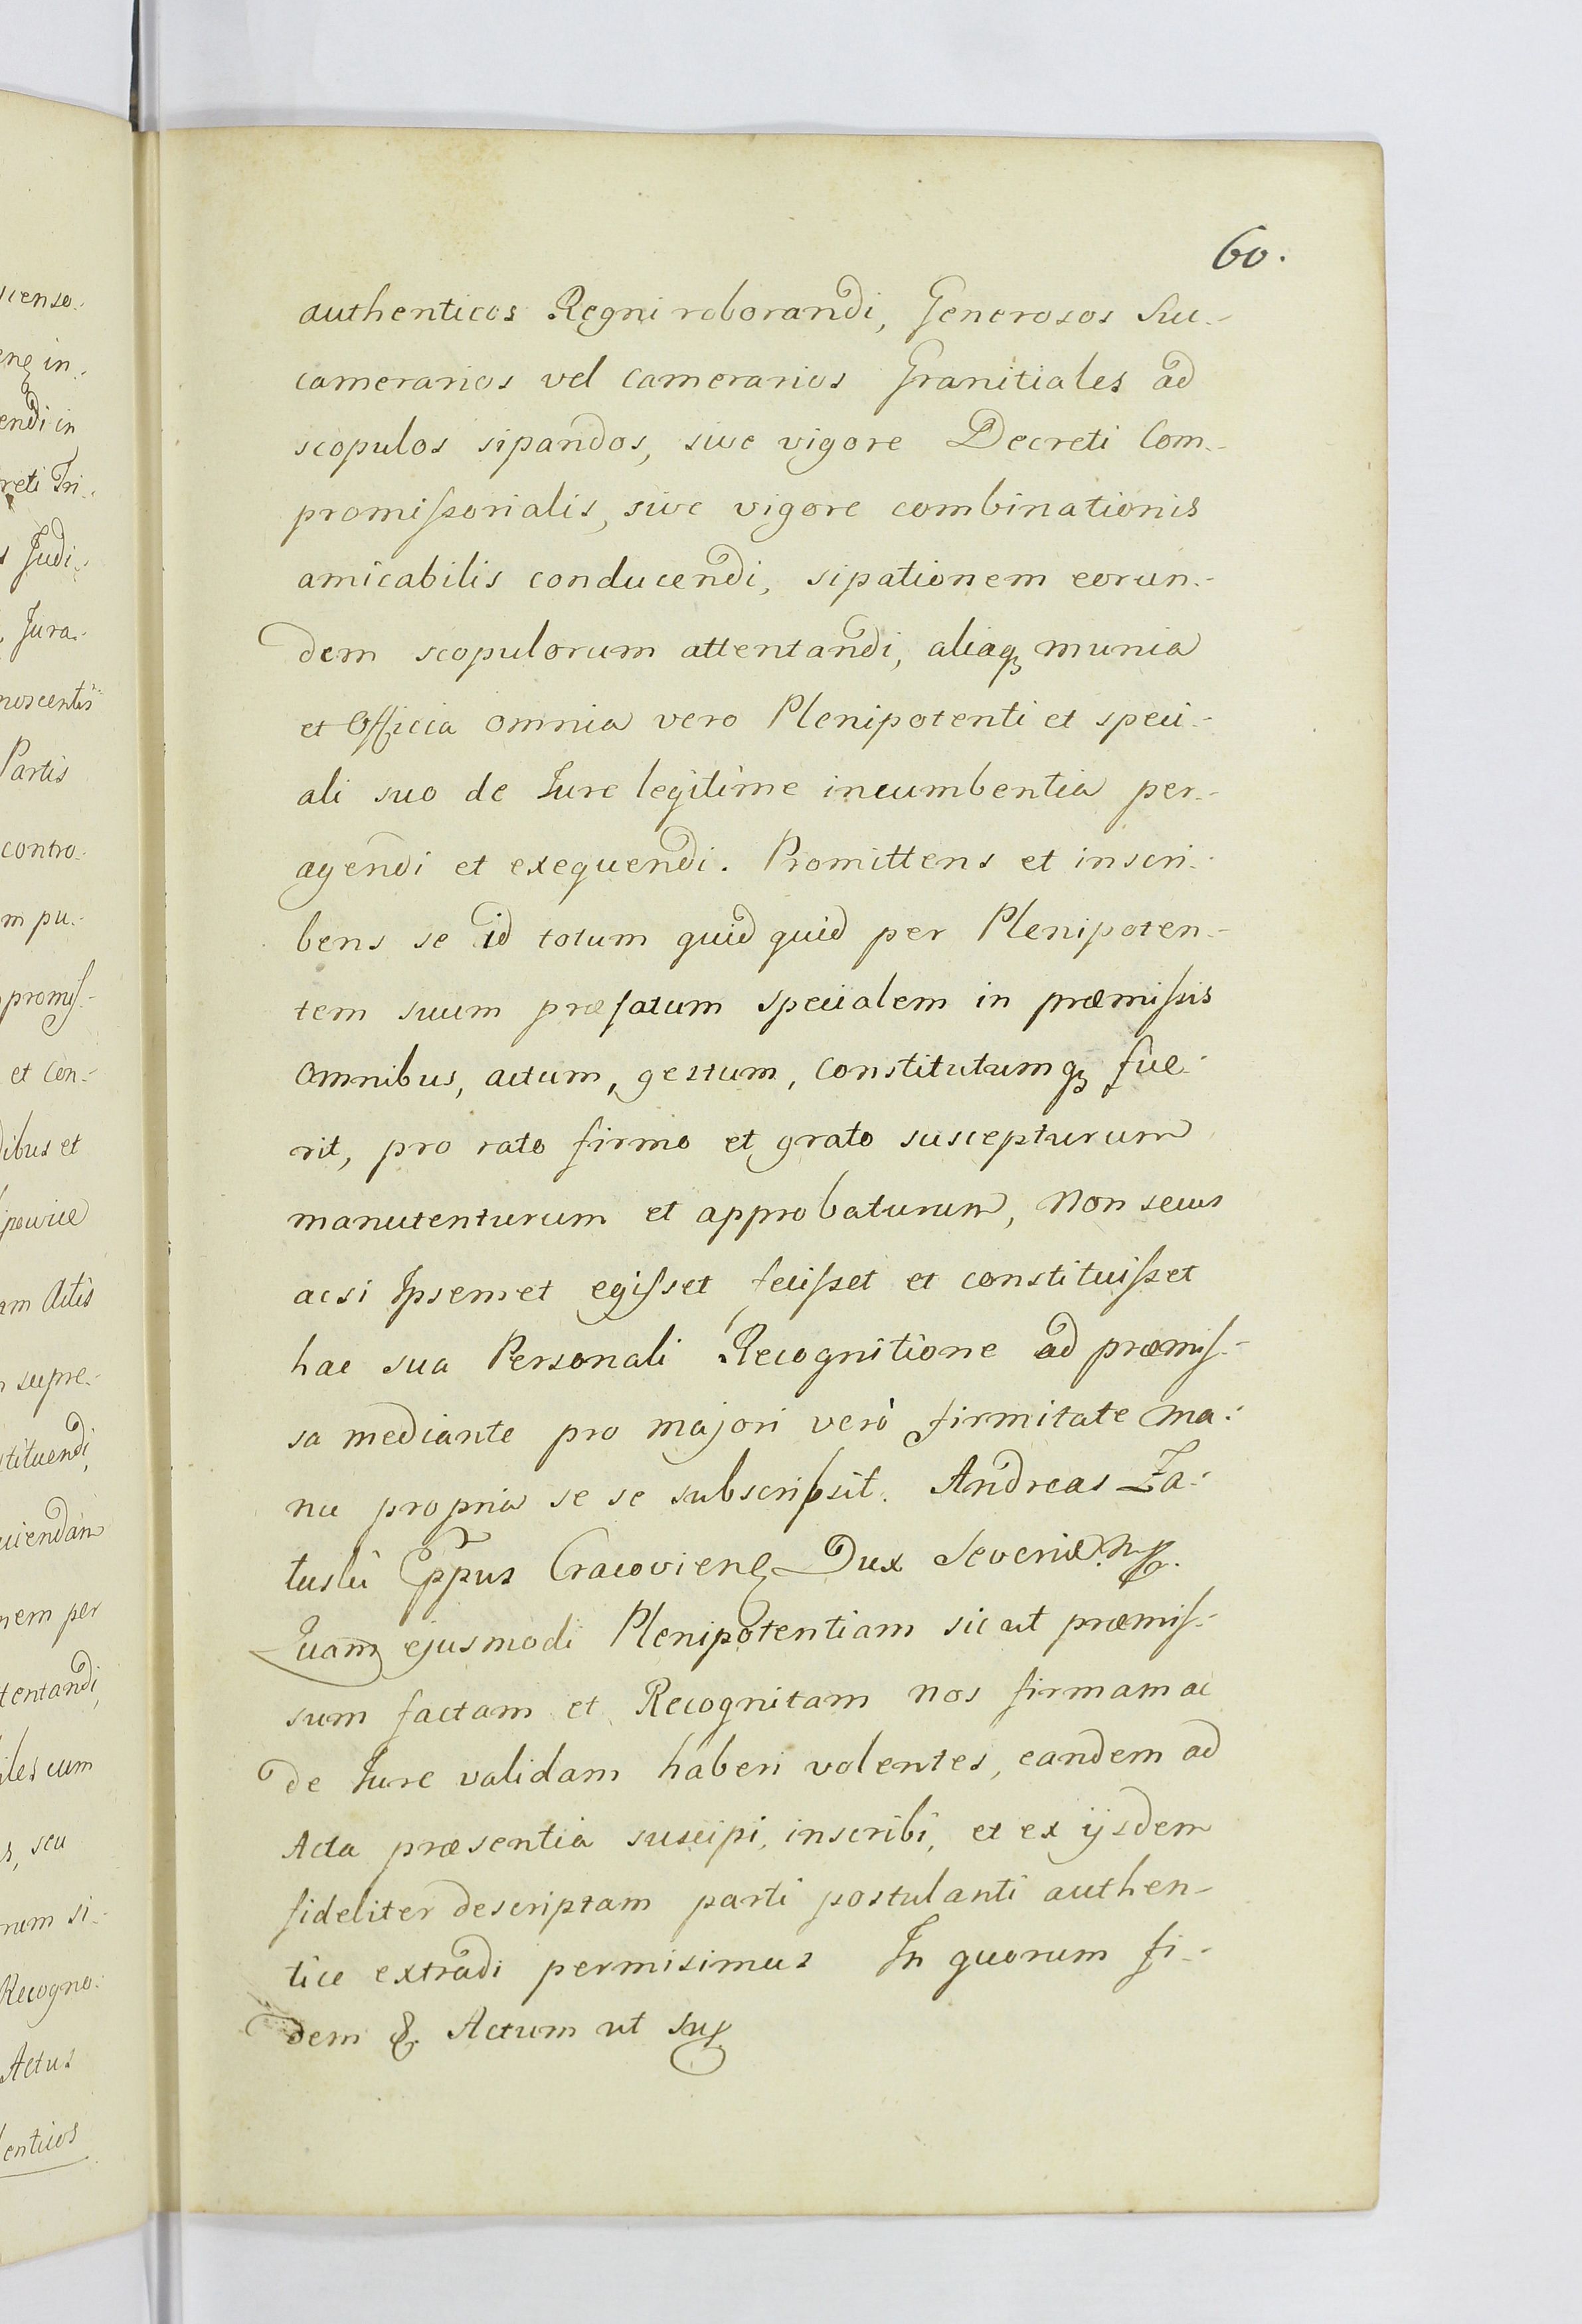 60.
authenticos Regni roborandi, Generosos Suc-
camerarios vel Camerarios Granitiales ad
scopulos sipandos, sive vigore Decreti Com-
promissorialis, sive vigore combinationis
amicabilis conducendi, sipationem eorun-
dem scopulorum attentandi, aliaq3 munia
et Officia omnia vero Plenipotenti et speci-
ali suo de Iure legitime incumbentia per-
agendi et exequendi. Promittens et inscri-
bens se id totum quid quid per Plenipoten-
tem suum præfatum specialem in præmissis
omnibus, actum, gestum, constitutumq3 fue-
rit, pro rato firmo et grato suscepturum
manutenturum et approbaturum, non secus
acsi Ipsemet egisset fecisset et constituisset
hac sua Personali Recognitione ad præmis-
sa mediante pro majori verò firmitate ma-
nu propria se se subscripsit. Andreas Za-
łuski Eppus Cracovien Dux Severiæ. mp.
Quam ejusmodi Plenipotentiam sic ut præmis-
sum factam et Recognitam nos firmam ac
de Iure validam haberi volentes, eandem ad
Acta præsentia suscipi, inscribi, et ex ijsdem
fideliter descriptam parti postulanti authen-
tice extradi permisimus In quorum fi-
dem & Actum ut sup
scienso-
in-
endi in
reti Tri-
Judi-
Jura-
noscentis
Partis
contro-
m pu-
promis-
et con-
ibus et
am Actis
supre-
tituendi,
nem per
tentandi,
iles cum
s, seu
rum si-
Recogno-
Actus
enticos